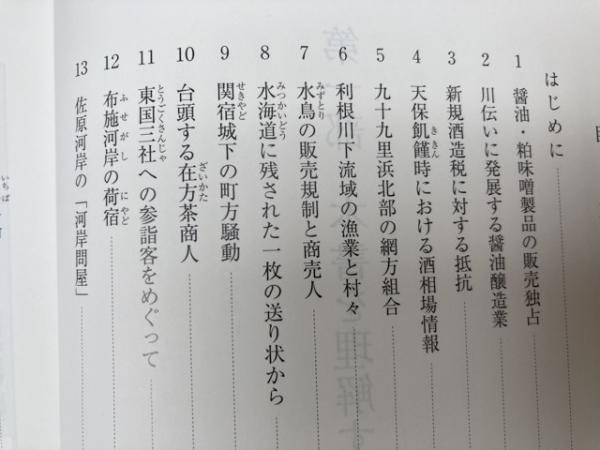 はじめに
1 醤油・粕味噌製品の販売独占
2 川伝いに発展する醤油醸造業
3 新規酒造税に対する抵抗
4 天保飢饉時における酒相場情報
5 九十九里浜北部の網方組合
6 利根川下流域の漁業と村々
7 水鳥の販売規制と商売人
8 水海道に残された一枚の送り状から
9 関宿城下の町方騒動
10 台頭する在方茶商人
11 東国三社への参詣客をめぐって
12 布施河岸の荷宿
13 佐原河岸の「河岸問屋」